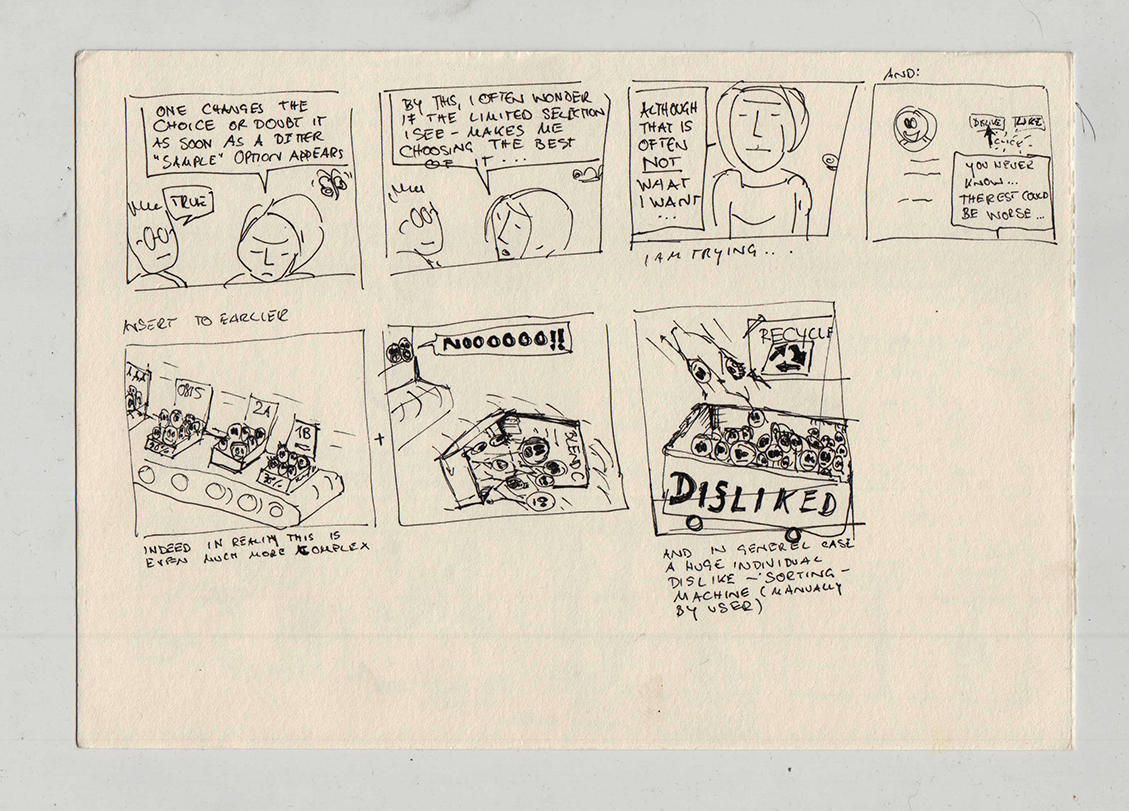 ONE CHANGES THE
CHOICE OR DOUBT IT
AS SOON AS A DITTER
"SAMPLE" OPTION APPEARS
TRUE
BY THIS, I OFTEN WONDER
IF THE LIMITED SELECTION
I SEE - MAKES ME
CHOOSING THE BEST
OF IT...
ALTHOUGH
THAT IS
OFTEN
NOT
WHAT
I WANT
...
I AM TRYING...
AND:
DISLIKE
LIKE
CLICK
YOU NEVER
KNOW...
THEREST COULD
BE WORSE...
INSERT TO EARLIER
0815
2A
1B
INDEED IN REALITY THIS IS
EVEN MUCH MORE COMPLEX
+
NOOOOOO!!
BLEND C
RECYCLE
DISLIKED
AND IN GENEREL CASE
A HUGE INDIVIDUAL
DISLIKE - SORTING -
MACHINE (MANUALLY
BY USER)